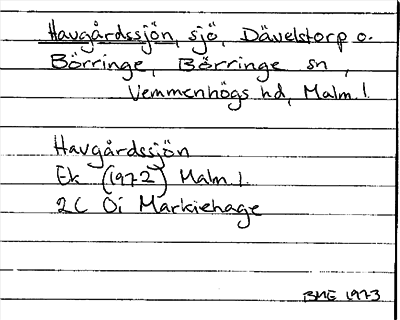 Havgårdssjön, sjö, Dävelstorp o.
Börringe, Börringe sn,
Vemmenhögs hd, Malm. l.
Havgårdssjön
Ek (1972) Malm. l.
2C Oi Markiehage
BME 1973